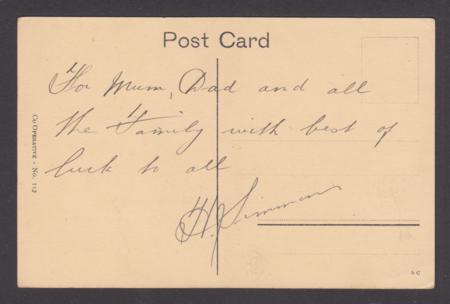 Post Card
For Mum, Dad and all
the Family with best of
luck to all
H. Simmons
Co-Operative - No. 112